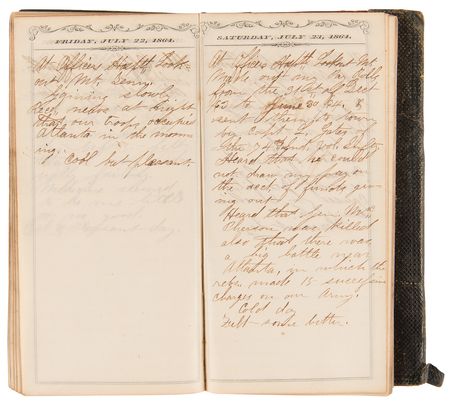 FRIDAY, JULY 22, 1864.
At Officers Hospital Look-
out Mt. Tenn.
Gaining slowly
Recd news at night
that our troops occupied
Atlanta in the morn-
ing.
Cool but pleasant.
SATURDAY, JULY 23, 1864.
At Officers Hospital Lookout Mt.
Made out my Pay Rolls
from the 31st of Dect
63 to June 30 64. &
sent them to town
by Capt. L.
the Ind. Vol. Inft.
Heard that he could
not draw my pay on
the acct. of funds giv-
ing out.
Heard that Gen. Mc-
Pherson was killed
also that there was
a big battle near
Atlanta, in which the
rebs. made 15 successive
charges on our army.
Cold day
Felt some better.